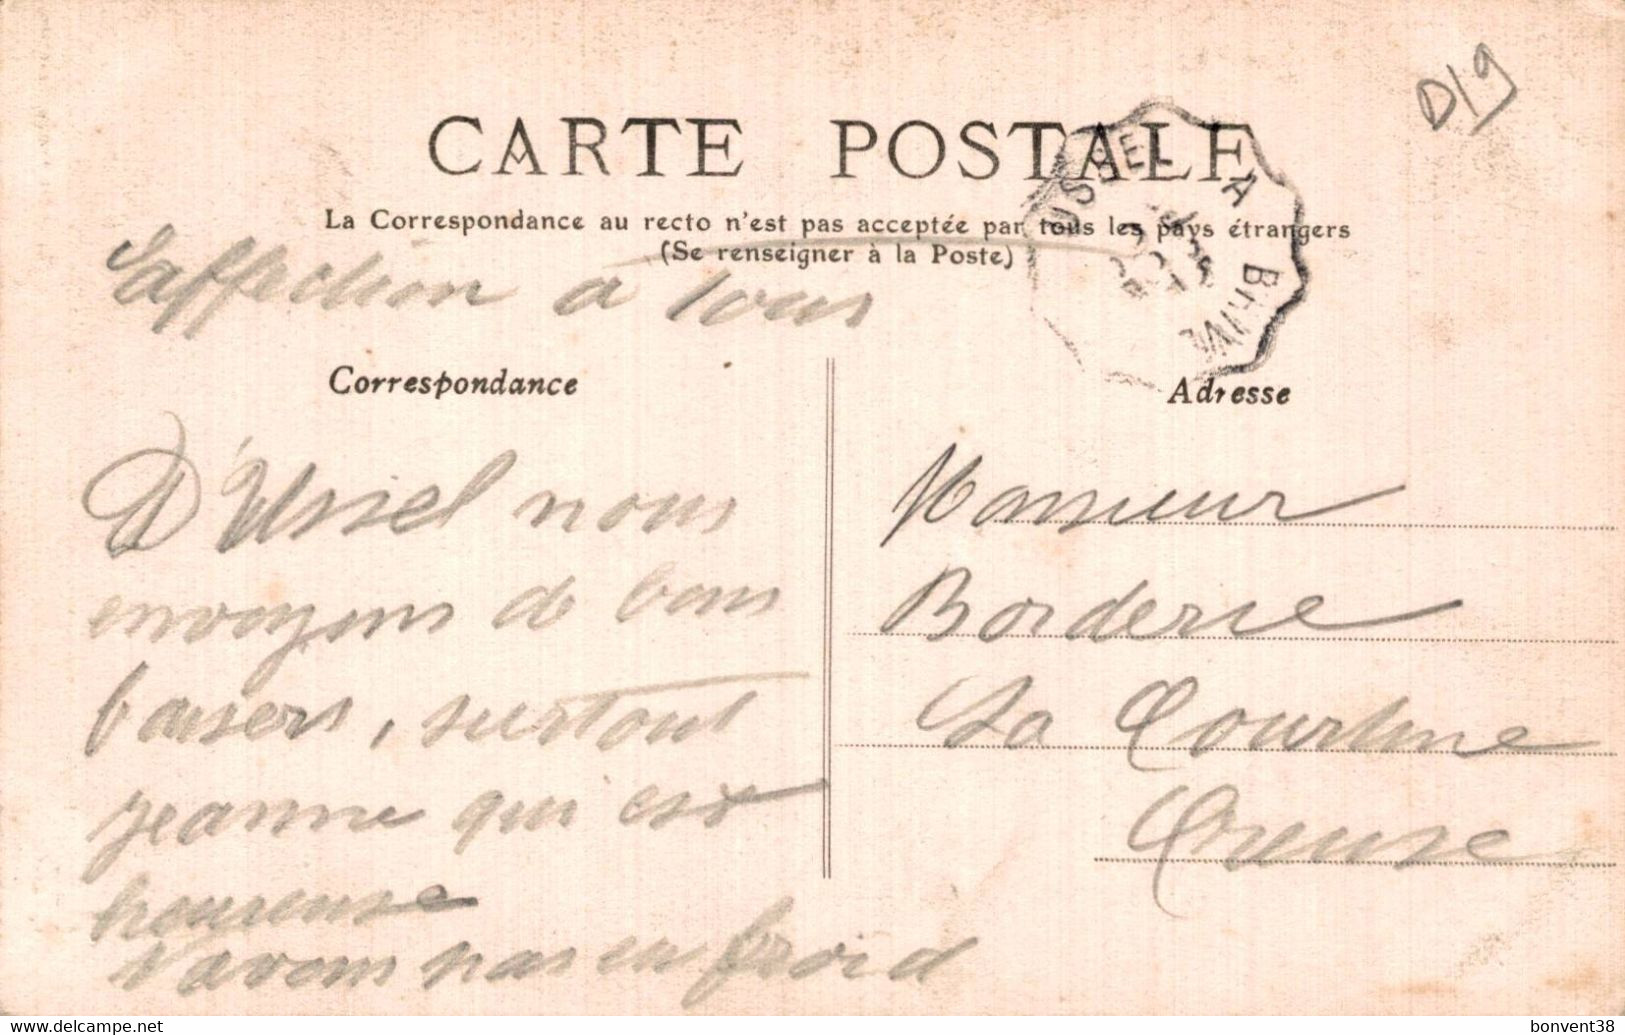 D19
CARTE POSTALE
USSEL A BRIVE
La Correspondance au recto n'est pas acceptée par tous les pays étrangers
(Se renseigner à la Poste)
affection à tous
Correspondance
D'Ussel nous
envoyons de bons
baisers, surtout
jeanne qui est
heureuse
N'avons pas eu froid
Adresse
Monsieur
Borderie
La Courtine
Creuse
bonvent38